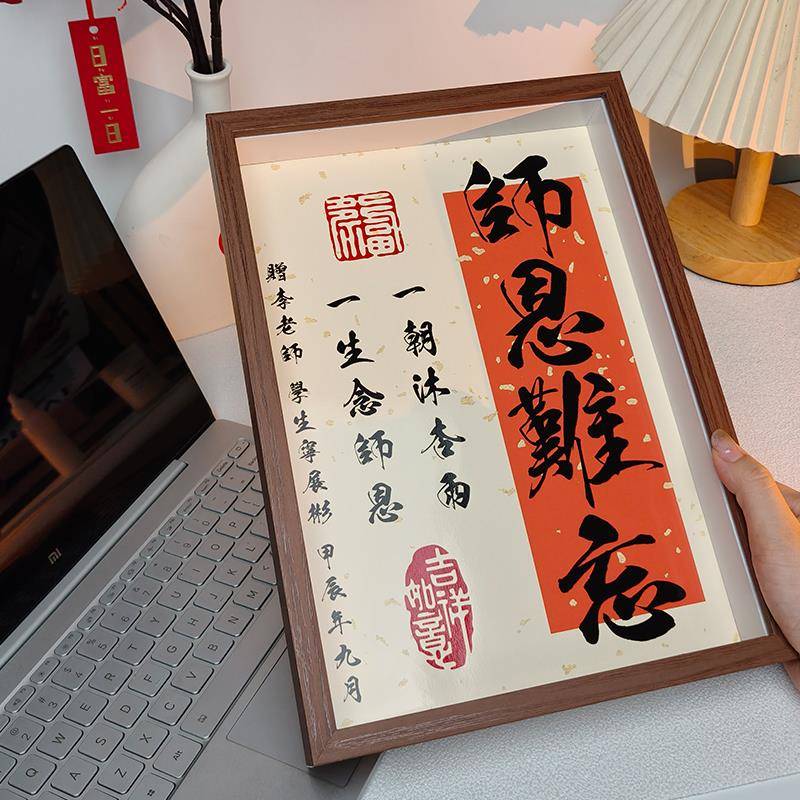 師恩難忘
一朝沐杏雨
一生念師恩
贈李老師 學生寧展彬 甲辰年九月
吉祥如意
日富一日
mi